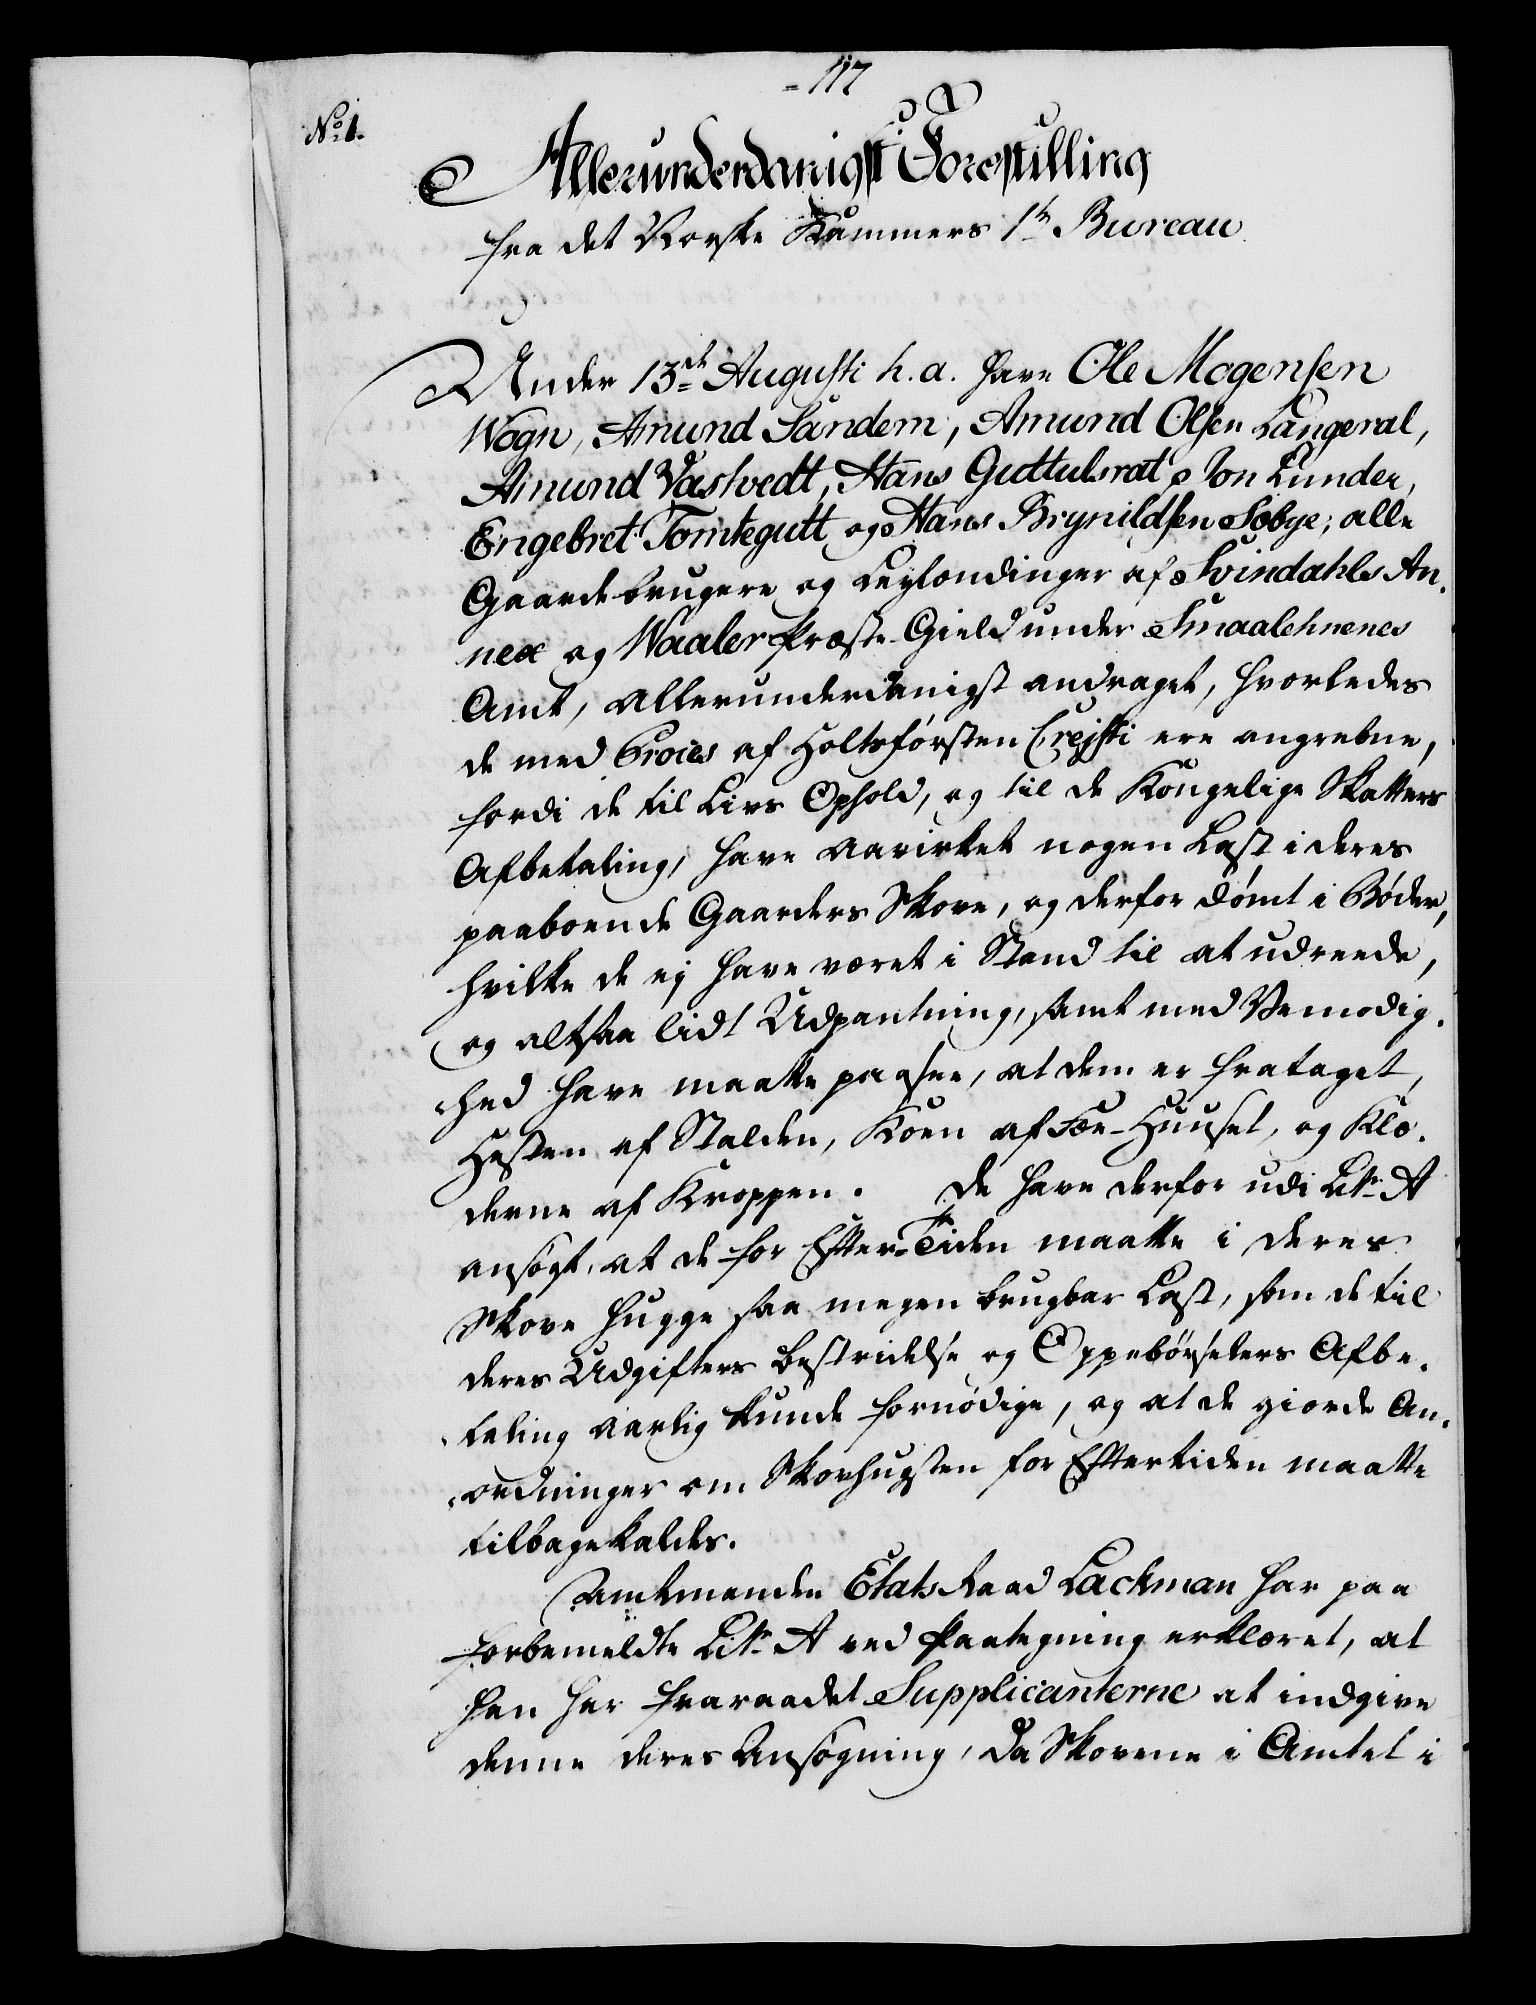 117
No 1.
Allerunderdanigst Forestilling
fra det Norske Kammers 1te Bureau
Under 13de Augusti h. a. have Ole Mogensen
Wogn, Amund Sandem, Amund Olsen Langeral,
Amund Vastvedt, Hans Guttulsrat, Jon Lunder,
Engebret Tomtegutt og Hans Brynildsen Sobye; alle
Gaardebrugere og Leylændinger af Svindahls An-
nex og Waaler Præste-Gield under Smaalehnenes
Amt, allerunderdanigst andraget, hvorledes
de med Proces af Holtzførsten Crejsti ere angrebne,
fordi de til Livs Ophold, og til de Kongelige Skatters
Afbetaling, have aavirket nogen Last i deres
paaboende Gaarders Skove, og derfor dømt i Bøder,
hvilke de ej have været i Stand til at udreede,
og altsaa lidt Udpantning, samt med Vemodig-
hed have maatte paasee, at dem er frataget,
Hesten af Stalden, Koen af Fæe-Huuset, og Klæ-
derne af Kroppen. De have derfor udi Litr. A
ansøgt, at de for Efter-Tiden maatte i deres
Skove hugge saa megen brugbar Last, som de til
deres Udgifters Bestridelse og Oppebørselers Afbe-
taling aarlig kunde fornødige, og at de giorde An-
ordninger om Skovhugsten for Eftertiden maatte
tilbagekaldes.
Amtmanden Etats Raad Lachman har paa
forbemeldte Litr. A ved Paategning erklæret, at
han har fraraadet Supplicanterne at indgive
denne deres Ansøgning, da Skovene i Amtet i